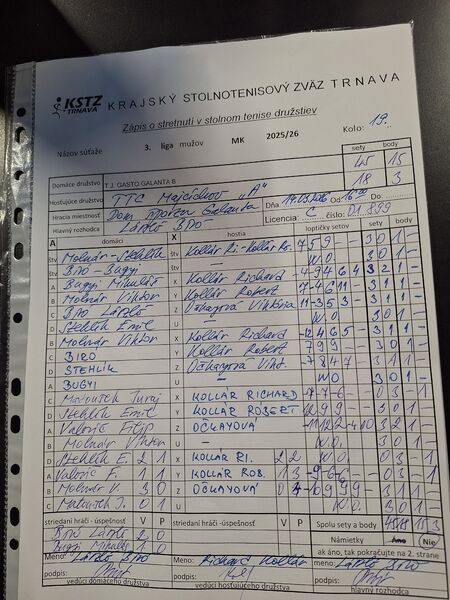 KSTZ
TRNAVA
KRAJSKÝ STOLNOTENISOVÝ ZVÄZ TRNAVA
Zápis o stretnutí v stolnom tenise družstiev
Názov súťaže 3. liga mužov MK 2025/26 Kolo: 19.
sety body
Domáce družstvo T.J. GASTO GALANTA B 45 15
Hosťujúce družstvo TTC Majcichov "A" 18 3
Hracia miestnosť Dom športu Galanta Dňa 19.03.2026 od 16 Do:
Hlavný rozhodca László BIRO Licencia: C číslo: 01 899
A domáci X hostia loptičky sety sety body
štv Molnár - Stehlík štv Kollár Ri. - Kollár Ro. 7 5 9 - - 3 0 1 -
štv Biro - Bugyi štv W.O. 3 0 1 -
A Bugyi Mikuláš X Kollár Richard -4 9 4 6 4 3 2 1 -
B Molnár Viktor Y Kollár Robert 3 1 1 -
C Biro László Z Očkayová Viktória 3 1 1 -
D Stehlík Emil U W.O. 3 0 1 -
B Molnár Viktor X Kollár Richard 3 1 1 -
C BIRO Y Kollár Robert 7 9 9 - - 3 0 1 -
D STEHLÍK Z Očkayová Vikt. -7 8 4 7 3 1 1 -
A BUGYI U - WO 3 0 1 -
C Matoušek Juraj X KOLLÁR RICHARD 0 3 - 1
D Stehlík Emil Y KOLLÁR ROBERT 3 0 1 -
A Valovič Filip Z OČKAYOVÁ 3 2 1 -
B Molnár Viktor U - W.O. 3 0 1 -
D Stehlík E. 2 1 X KOLLÁR RI. 2 2 W.O.
A Valovič F. 1 1 Y KOLLÁR ROB. 1 3 0 3 - 1
B Molnár V. 3 0 Z OČKAYOVÁ 0 4 3 1 1 -
C Matoušek J. 0 1 U W.O. 3 0 1 -
striedaní hráči - úspešnosť V P striedaní hráči - úspešnosť V P Spolu sety a body 45 18 15 3
Biro László 2 0 Námietky Áno Nie
Bugyi Mikuláš 2 0 ak áno, tak pokračujte na 2. strane
Meno: László BIRO Meno: Richard Kollár Meno: László BIRO
podpis: podpis: podpis:
vedúci domáceho družstva vedúci hosťujúceho družstva hlavný rozhodca